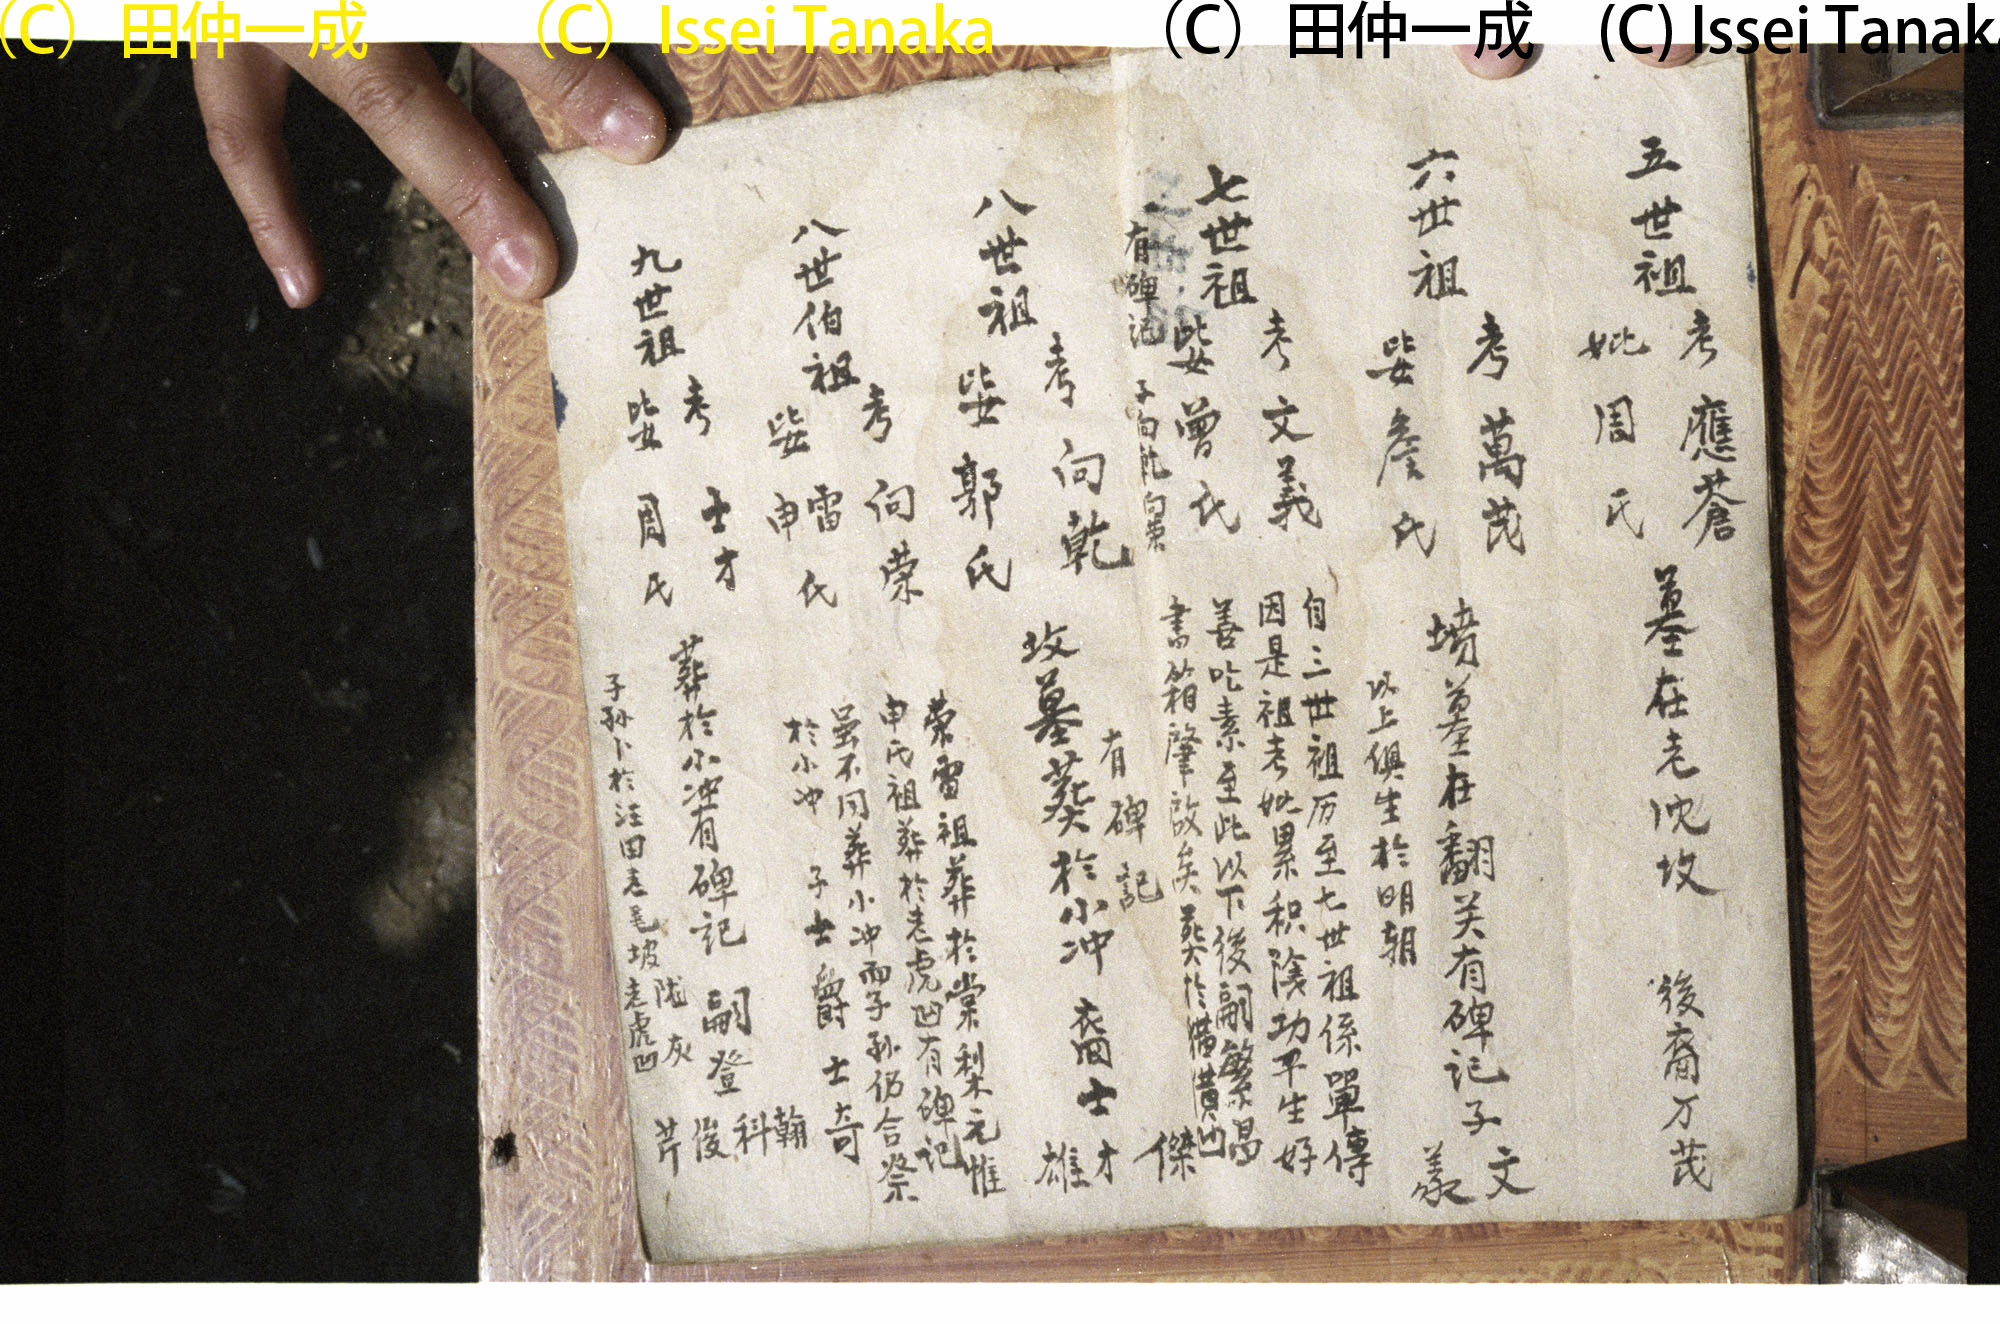 (C) 田仲一成 (C) Issei Tanaka (C) 田仲一成 (C) Issei Tanaka
五世祖
考 應蒼
妣 周氏
墓在老 坟 後裔万茂
六世祖
考 萬茂
妣 詹氏
墳墓在翻关有碑记子文
義
以上俱生於明朝
七世祖
考 文義
妣 曾氏
有碑记 子向乾向荣
自三世祖历至七世祖係單傳
因是祖考妣累积陰功平生好
善吃素至此以下後嗣繁昌
書箱肇啟矣葬於
八世祖
考 向乾
妣 郭氏
坟墓葬於小冲 裔士才
傑
雄
有碑記
八世伯祖
考 向荣
妣 雷
申 氏
荣雷祖葬於棠梨元惟
申氏祖葬於老虎凹有碑记
虽不同葬小冲而子孙仍合祭
於小冲 子士爵 士奇
九世祖
考 士才
妣 周氏
葬於小冲有碑记 嗣登
翰
科
俊
芹
子孙卜於汪田老毛坡老虎凹
陇灰